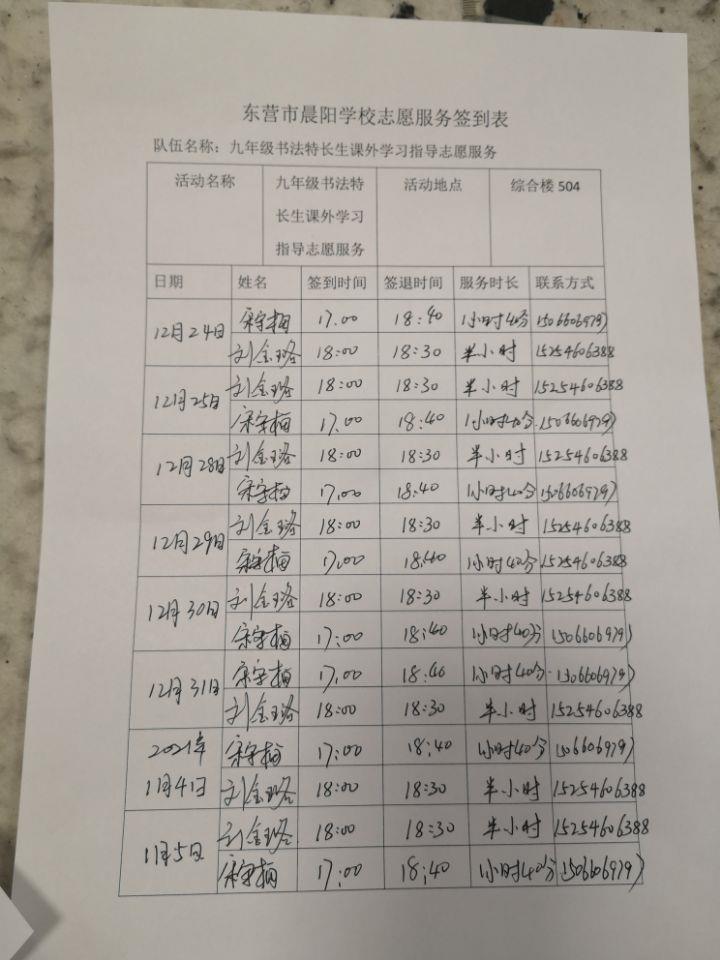 东营市晨阳学校志愿服务签到表
队伍名称：九年级书法特长生课外学习指导志愿服务
活动名称 九年级书法特长生课外学习指导志愿服务 活动地点 综合楼504
日期 姓名 签到时间 签退时间 服务时长 联系方式
12月24日 宋字梅 17.00 18:40 1小时40分
刘金璐 18:00 18:30 半小时 15254606388
12月25日 刘金璐 18:00 18:30 半小时 15254606388
宋字梅 17.00 18:40 1小时40分
12月28日 刘金璐 18:00 18:30 半小时 15254606388
宋字梅 17.00 18.40 1小时40分
12月29日 刘金璐 18:00 18:30 半小时 15254606388
宋字梅 17.00 18.40 1小时40分 15254606388
12月30日 刘金璐 18:00 18:30 半小时 15254606388
宋字梅 17:00 18:40 1小时40分
12月31日 宋字梅 17.00 18:40 1小时40分
刘金璐 18:00 18:30 半小时 15254606388
2021年 宋字梅 17:00 18:40 1小时40分
1月4日 刘金璐 18:00 18:30 半小时 15254606388
1月5日 刘金璐 18:00 18:30 半小时 15254606388
宋字梅 17:00 18:40 1小时40分